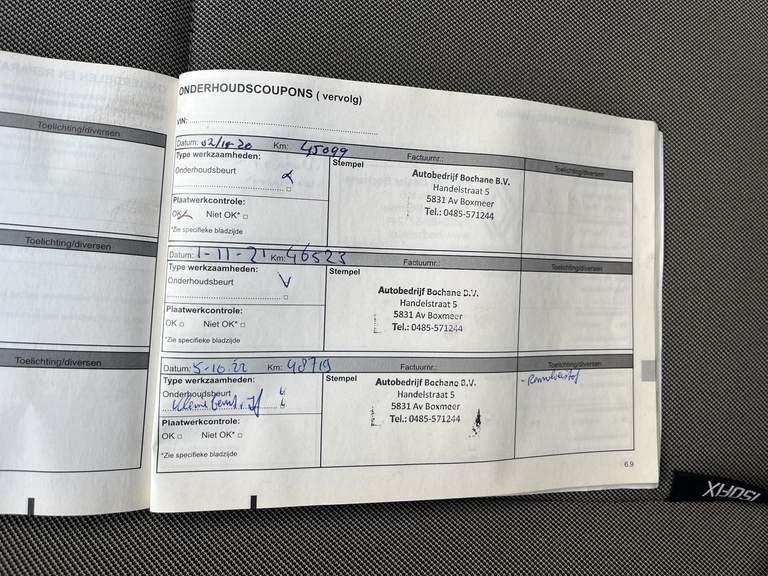 Toelichting/diversen
Toelichting/diversen
Toelichting/diversen
ONDERHOUDSCOUPONS ( vervolg)
VIN:
Datum: 02/10-20 Km: 45099 Factuurnr.: Toelichting/diversen
Type werkzaamheden:
Onderhoudsbeurt
Plaatwerkcontrole:
OK Niet OK* □
*Zie specifieke bladzijde
Stempel
Autobedrijf Bochane B.V.
Handelstraat 5
5831 Av Boxmeer
Tel.: 0485-571244
Datum: 1-11-21 Km: 46523 Factuurnr.: Toelichting/diversen
Type werkzaamheden:
Onderhoudsbeurt V
Plaatwerkcontrole:
OK □ Niet OK* □
*Zie specifieke bladzijde
Stempel
Autobedrijf Bochane B.V.
Handelstraat 5
5831 Av Boxmeer
Tel.: 0485-571244
Datum: 5-10-22 Km: 48719 Factuurnr.: Toelichting/diversen
Type werkzaamheden:
Onderhoudsbeurt
Kleine beurt
Plaatwerkcontrole:
OK □ Niet OK* □
*Zie specifieke bladzijde
Stempel
Autobedrijf Bochane B.V.
Handelstraat 5
5831 Av Boxmeer
Tel.: 0485-571244
- Remvloeistof
6.9
ISOFIX